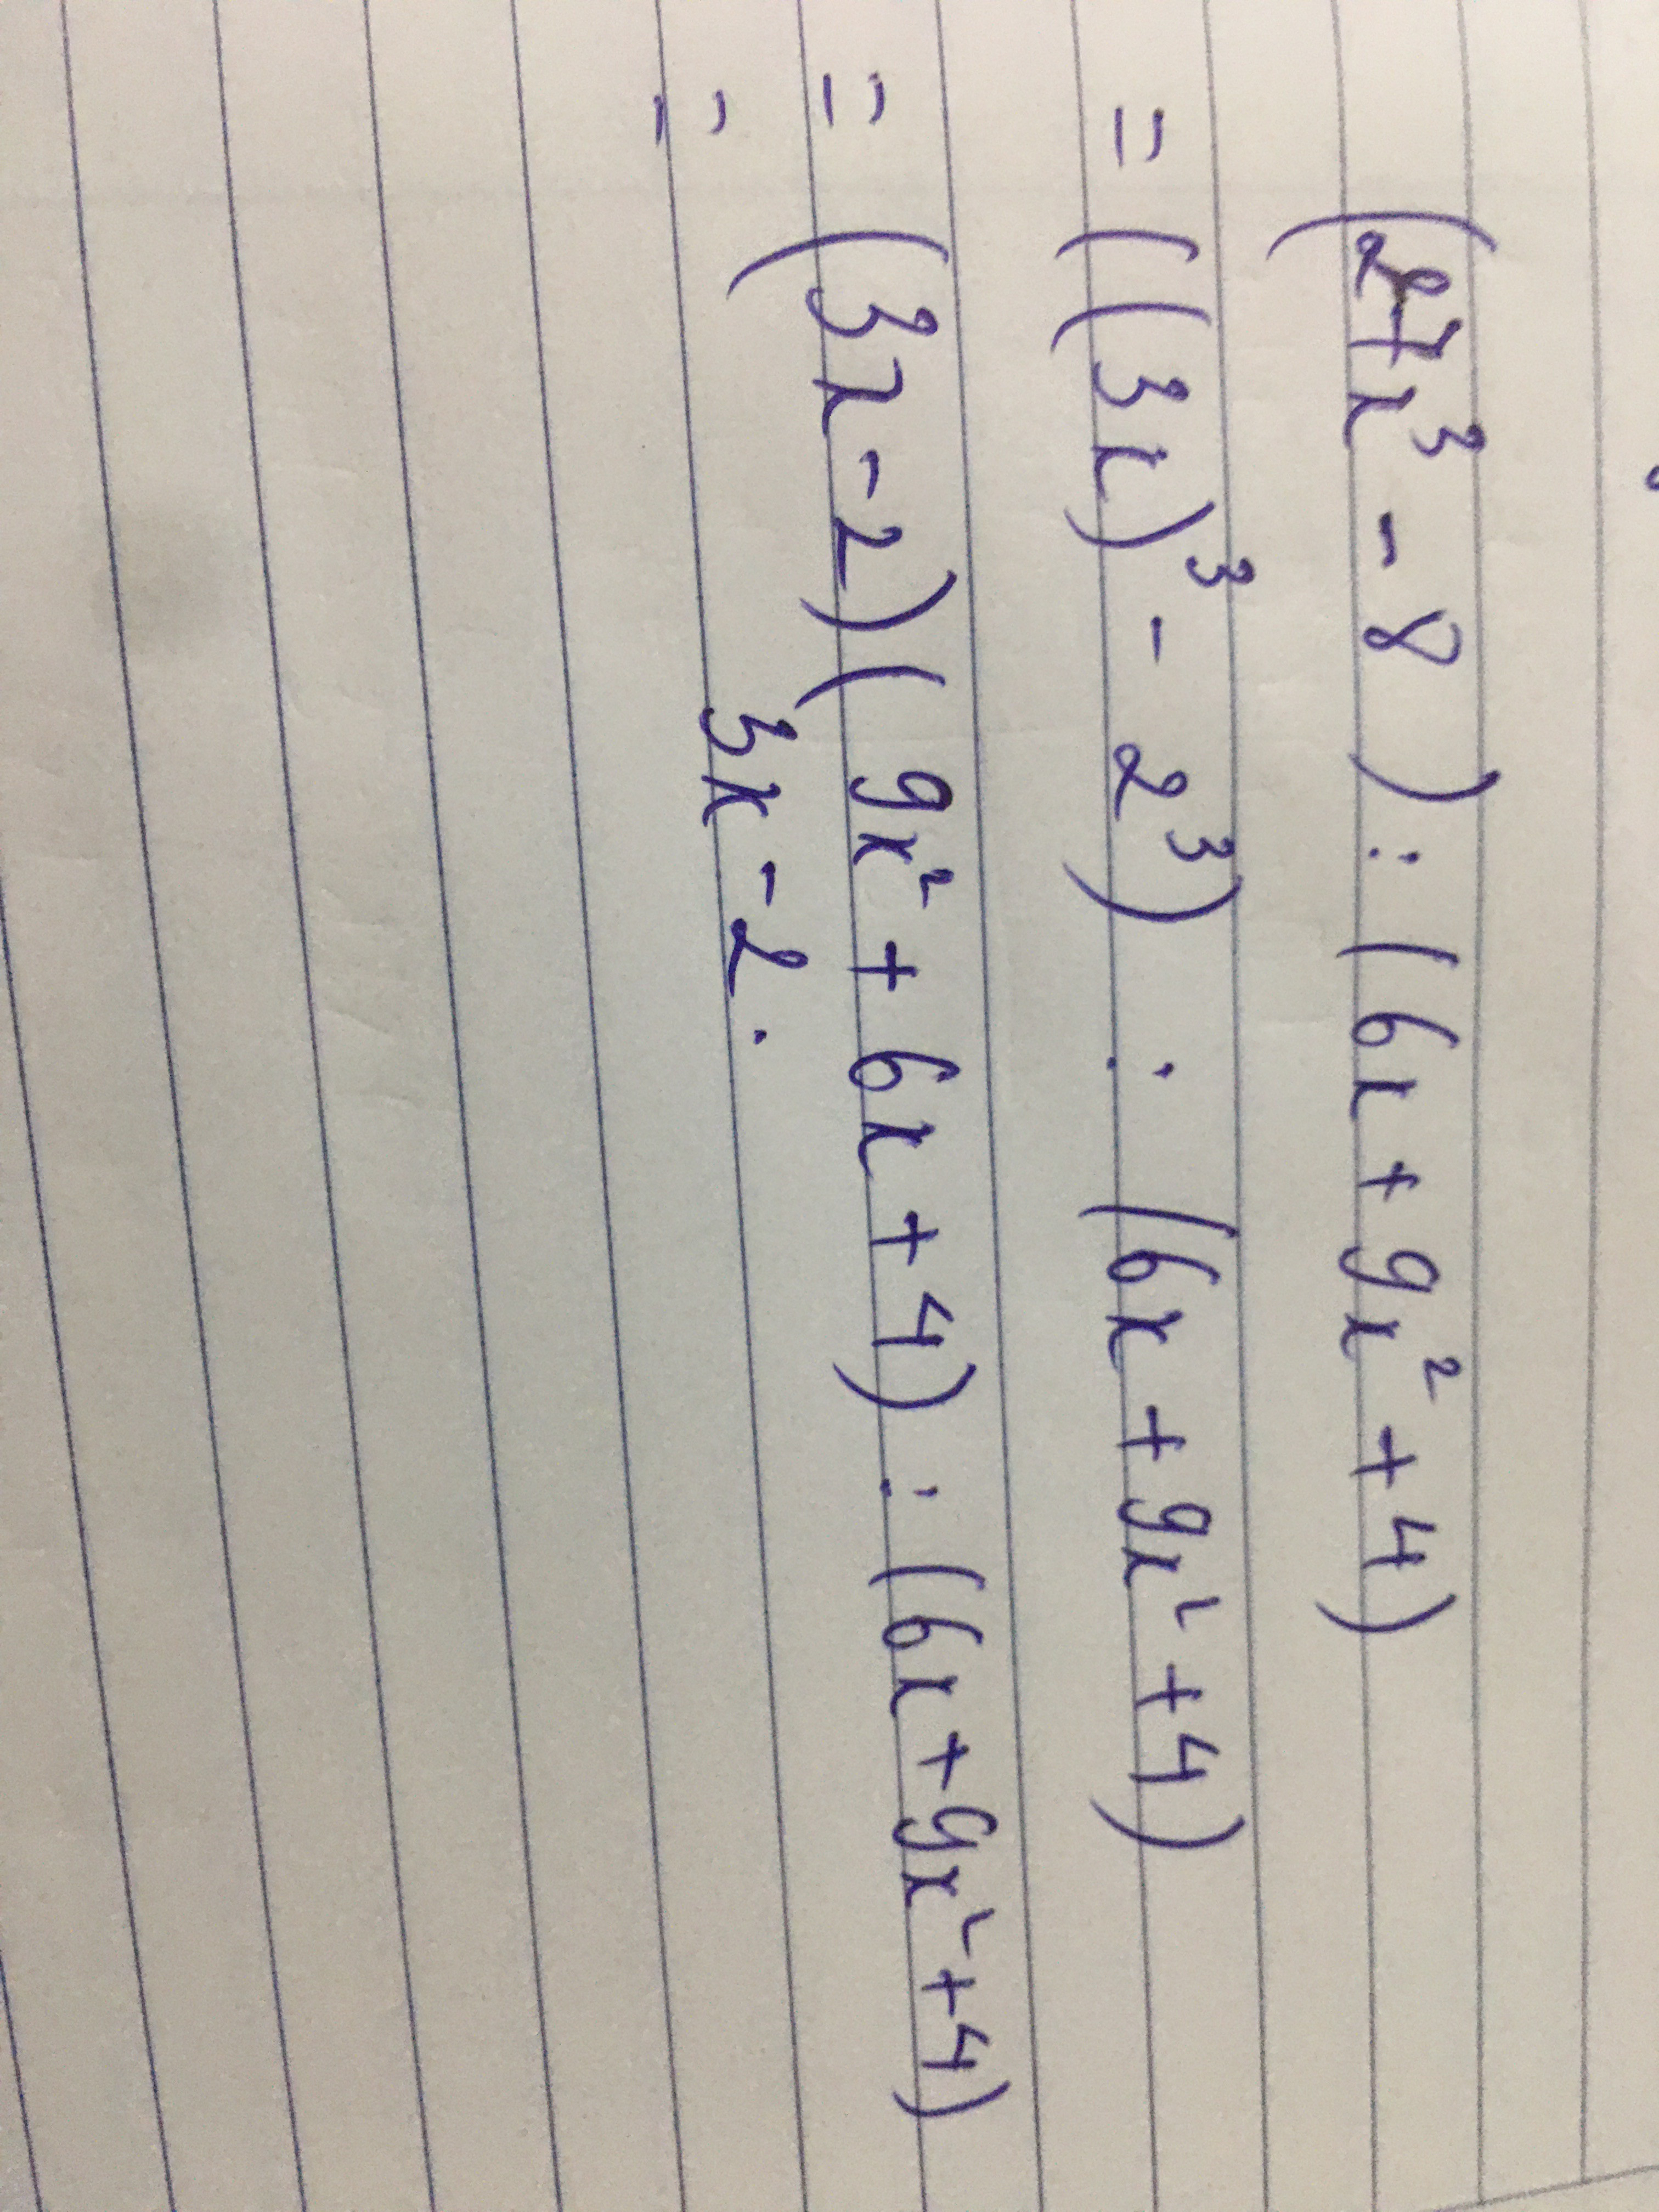 (27x³ - 8) : (6x + 9x² + 4)
= ((3x)³ - 2³) : (6x + 9x² + 4)
= (3x - 2)(9x² + 6x + 4) : (6x + 9x² + 4)
= 3x - 2.